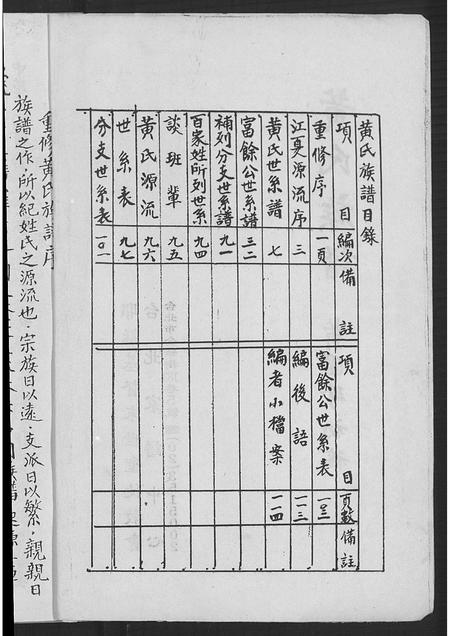 黃氏族譜目錄
項目 編次 備註
重修序 一頁
江夏源流序 三
黃氏世系譜 七
富餘公世系譜 三二
補刻分支世系譜 九一
百家姓所列世系 九四
談班輩 九五
黃氏源流 九六
世系表 九七
分支世系表 一〇一
項目 頁數 備註
富餘公世系表 一〇三
編後語 一一三
編者小檔案 一一四
重修黃氏族譜序
族譜之作，所以紀姓氏之源流也．宗族日以遠，支派日以繁，親親日